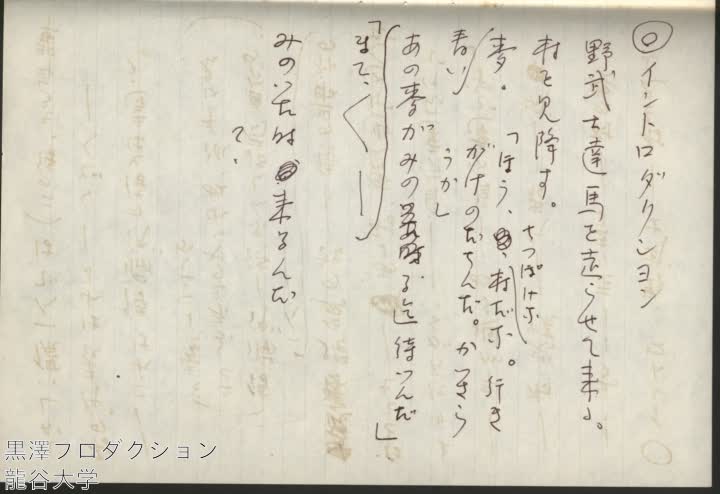 ◎イントロダクション
野武士達馬を走らせて来る。
村を見降す。
ちっぽけな
麦。「ほう、村だな。行き
青い がけのだちんだ。かっさら
うか」
あの麦がみのる迄待つんだ」
「まて、
みのる時 来るんだ
で、
黒澤プロダクション
龍谷大学